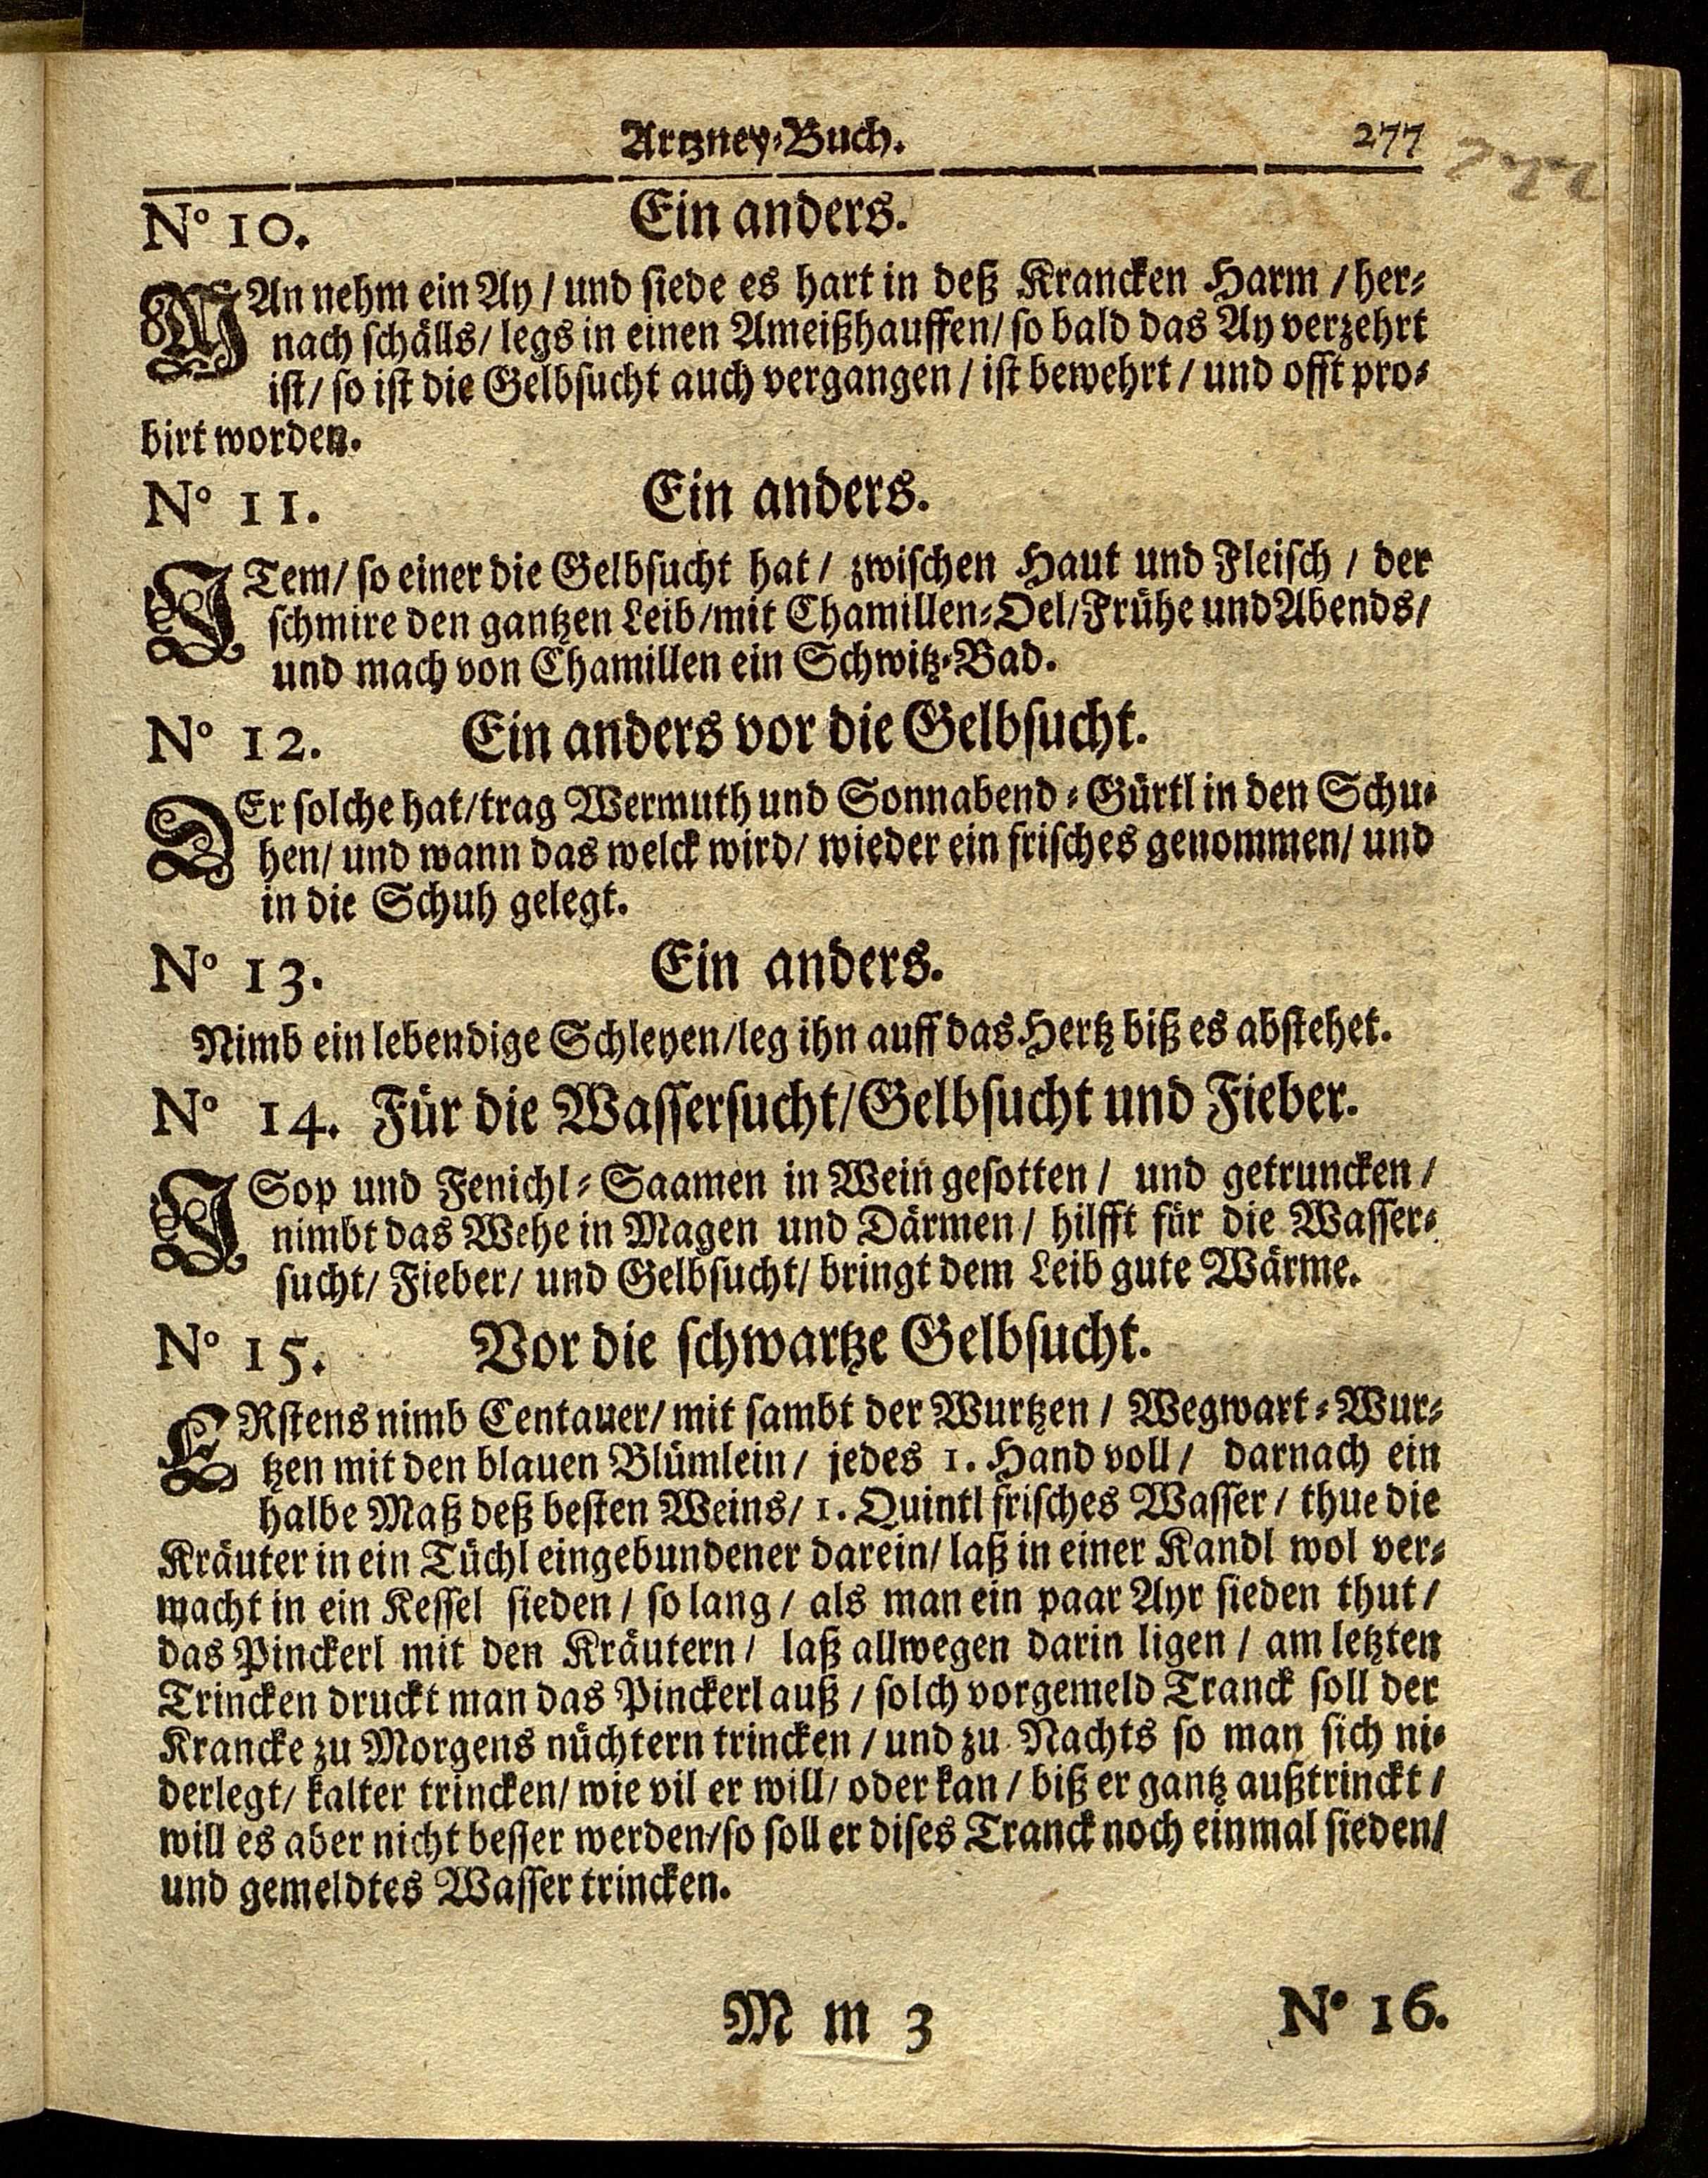 Artzney-Buch. 277
277
No 10. Ein anders.
MAn nehm ein Ay / und siede es hart in deß Krancken Harm / her-
nach schälls / legs in einen Ameißhauffen / so bald das Ay verzehrt
ist / so ist die Gelbsucht auch vergangen / ist bewehrt / und offt pro-
birt worden.
No 11. Ein anders.
ITem / so einer die Gelbsucht hat / zwischen Haut und Fleisch / der
schmire den gantzen Leib / mit Chamillen-Oel / Frühe und Abends /
und mach von Chamillen ein Schwitz-Bad.
No 12. Ein anders vor die Gelbsucht.
DEr solche hat / trag Wermuth und Sonnabend-Gürtl in den Schu-
hen / und wann das welck wird / wieder ein frisches genommen / und
in die Schuh gelegt.
No 13. Ein anders.
Nimb ein lebendige Schleyen / leg ihn auff das Hertz biß es abstehet.
No 14. Für die Wassersucht / Gelbsucht und Fieber.
ISop und Fenichl-Saamen in Wein gesotten / und getruncken /
nimbt das Wehe in Magen und Därmen / hilfft für die Wasser-
sucht / Fieber / und Gelbsucht / bringt dem Leib gute Wärme.
No 15. Vor die schwartze Gelbsucht.
ERstens nimb Centauer / mit sambt der Wurtzen / Wegwart-Wur-
tzen mit den blauen Blümlein / jedes 1. Hand voll / darnach ein
halbe Maß deß besten Weins / 1. Quintl frisches Wasser / thue die
Kräuter in ein Tüchl eingebundener darein / laß in einer Kandl wol ver-
macht in ein Kessel sieden / so lang / als man ein paar Ayr sieden thut /
das Pinckerl mit den Kräutern / laß allwegen darin ligen / am letzten
Trincken druckt man das Pinckerl auß / solch vorgemeld Tranck soll der
Krancke zu Morgens nüchtern trincken / und zu Nachts so man sich ni-
derlegt / kalter trincken / wie vil er will / oder kan / biß er gantz außtrinckt /
will es aber nicht besser werden / so soll er dises Tranck noch einmal sieden /
und gemeldtes Wasser trincken.
M m 3 No 16.